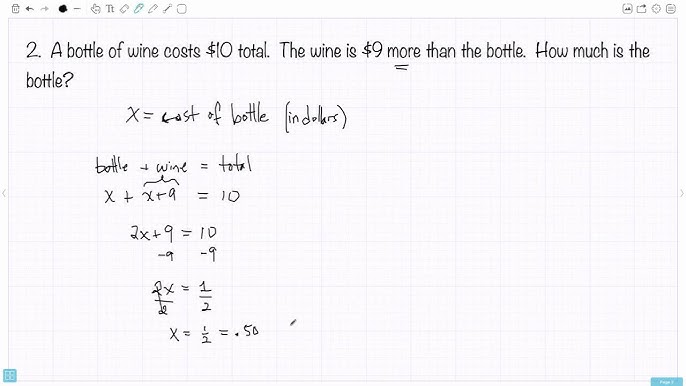 2. A bottle of wine costs $10 total. The wine is $9 more than the bottle. How much is the
bottle?
x = cost of bottle (in dollars)
bottle + wine = total
x + x+9 = 10
2x+9 = 10
-9 -9
2x = 1
2 2
x = 1/2 = .50
Page 2